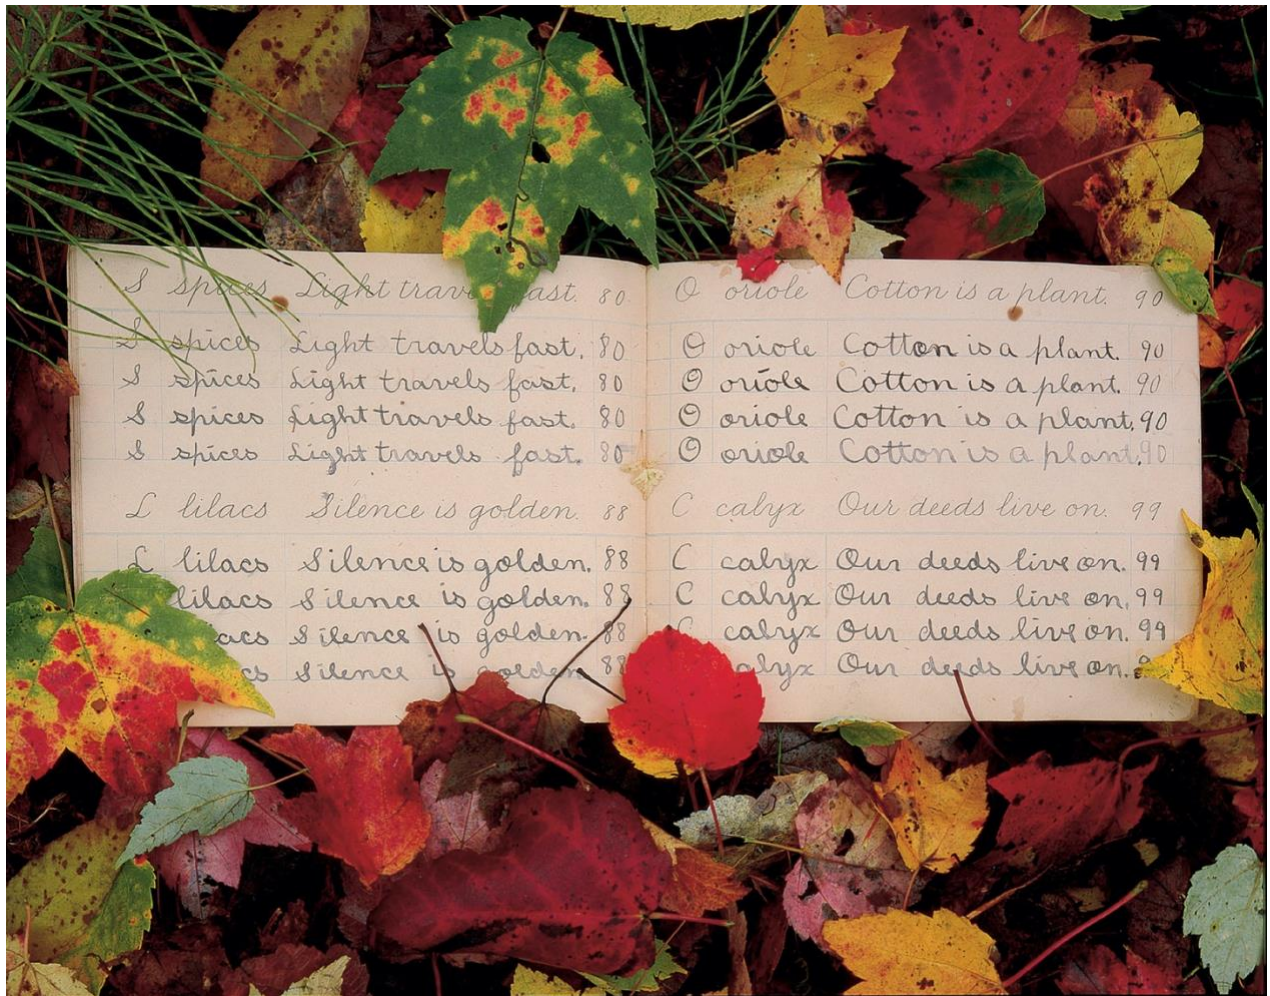 S spices Light travels fast. 80
S spices Light travels fast. 80
S spices Light travels fast. 80
S spices Light travels fast. 80
S spices Light travels fast. 80
L lilacs Silence is golden. 88
L lilacs Silence is golden. 88
lilacs Silence is golden. 88
acs Silence is golden. 88
cs Silence is golden. 88
O oriole Cotton is a plant. 90
O oriole Cotton is a plant. 90
O oriole Cotton is a plant. 90
O oriole Cotton is a plant. 90
O oriole Cotton is a plant. 90
C calyx Our deeds live on. 99
C calyx Our deeds live on. 99
C calyx Our deeds live on. 99
C calyx Our deeds live on. 99
alyx Our deeds live on. 9